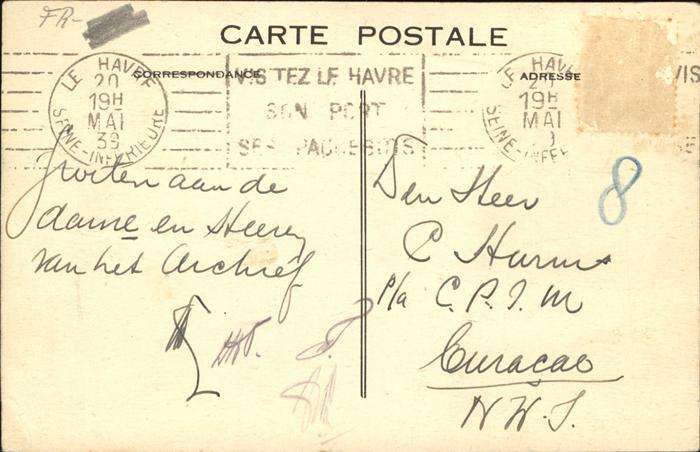 FR-
CARTE POSTALE
CORRESPONDANCE
ADRESSE
LE HAVRE
20
19H
MAI
39
SEINE-INFÉRIEURE
VISITEZ LE HAVRE
SON PORT
SES PAQUEBOTS
LE HAVRE
19H
MAI
VIS
8
Groeten aan de
dame en Heeren
van het Archief
Den Heer
C
p/a C.P.I.M
Curaçao
N.W.I.